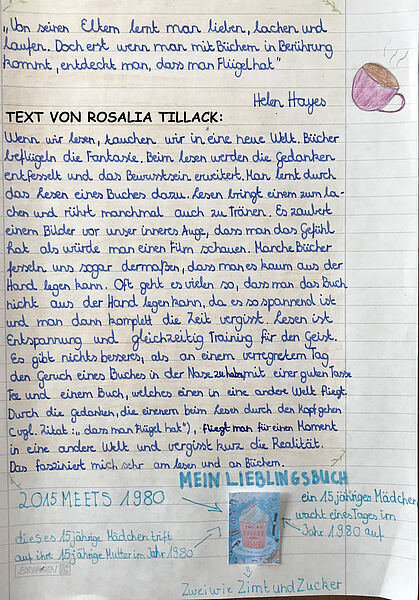 „Von seinen Eltern lernt man lieben, lachen und
laufen. Doch erst wenn man mit Büchern in Berührung
kommt, entdeckt man, dass man Flügel hat"
Helen Hayes
TEXT VON ROSALIA TILLACK:
Wenn wir lesen, tauchen wir in eine neue Welt. Bücher
beflügeln die Fantasie. Beim lesen werden die Gedanken
entfesselt und das Bewusstsein erweitert. Man lernt durch
das Lesen eines Buches dazu. Lesen bringt einem zum la-
chen und rührt manchmal auch zu Tränen. Es zaubert
einem Bilder vor unser inneres Auge, dass man das Gefühl
hat als würde man einen Film schauen. Manche Bücher
fesseln uns sogar dermaßen, dass man es kaum aus der
Hand legen kann. Oft geht es vielen so, dass man das Buch
nicht aus der Hand legen kann, da es so spannend ist
und man dann komplett die Zeit vergisst. Lesen ist
Entspannung und gleichzeitig Training für den Geist.
Es gibt nichts besseres, als an einem verregneten Tag
den Geruch eines Buches in der Nase zu haben, mit einer guten Tasse
Tee und einem Buch, welches einen in eine andere Welt fliegt.
Durch die Gedanken, die einem beim Lesen durch den Kopf gehen
(vgl. Zitat: „dass man Flügel hat"), fliegt man für einen Moment
in eine andere Welt und vergisst kurz die Realität.
Das fasziniert mich sehr am lesen und an Büchern.
MEIN LIEBLINGSBUCH
2015 MEETS 1980
ein 15 jähriges Mädchen
wacht eines Tages im
Jahr 1980 auf
dieses 15 jährige Mädchen trift
auf ihre 15 jährige Mutter im Jahr 1980
BRUNNEN
Zwei wie Zimt und Zucker